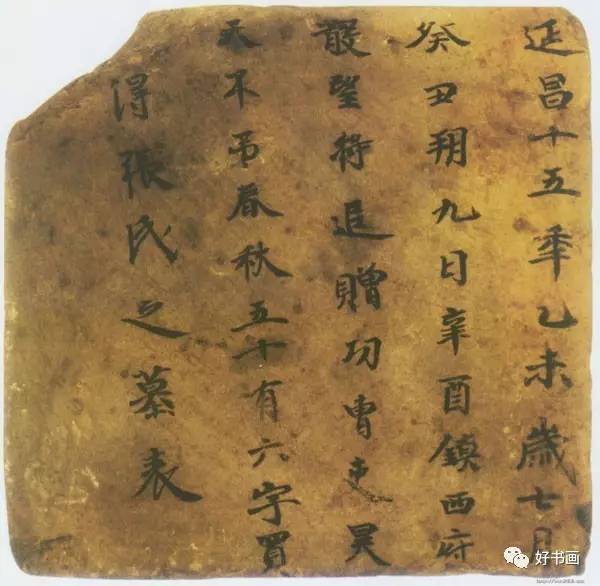 延昌十五年乙未歲七月
癸丑朔九日辛酉鎮西府
散望将追贈功曹吏昊
天不弔春秋五十有六字買
得張氏之墓表
好书画